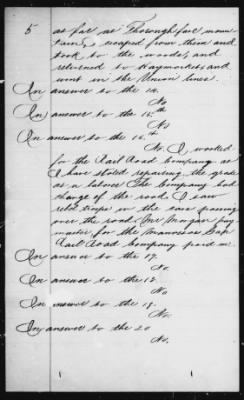 5 as far as Thoroughfare moun
tain, I escaped from them and
took to the woods, and
returned to Haymarket, and
went in the Union lines.
In answer to the 14.
No
In answer to the 15.th
No
In answer to the 16.th
No. I worked
for the Rail Road Company as
I have stated repairing the grade
as a laborer. The Company had
charge of the road. I saw
rebel troops in the cars passing
over the road. Mr Morgan pay
master for the Manassas Gap
Rail Road Company paid me.
In answer to the 17.
No.
In answer to the 18.
No
In answer to the 19.
No.
In answer to the 20
No.